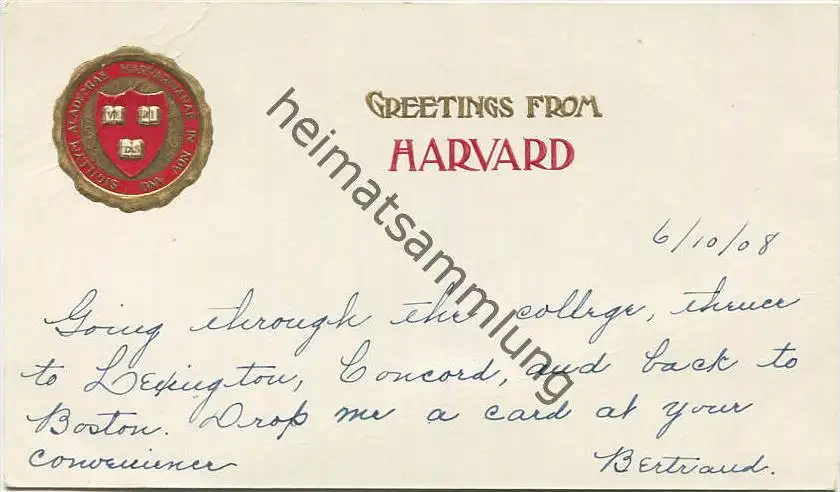 SIGILLVM ACADEMIAE HARVARDIANAE IN NOV ANG
VE RI
TAS
GREETINGS FROM
HARVARD
heimatsammlung
6/10/08
Going through the college, thence
to Lexington, Concord, and back to
Boston. Drop me a card at your
convenience
Bertrand.